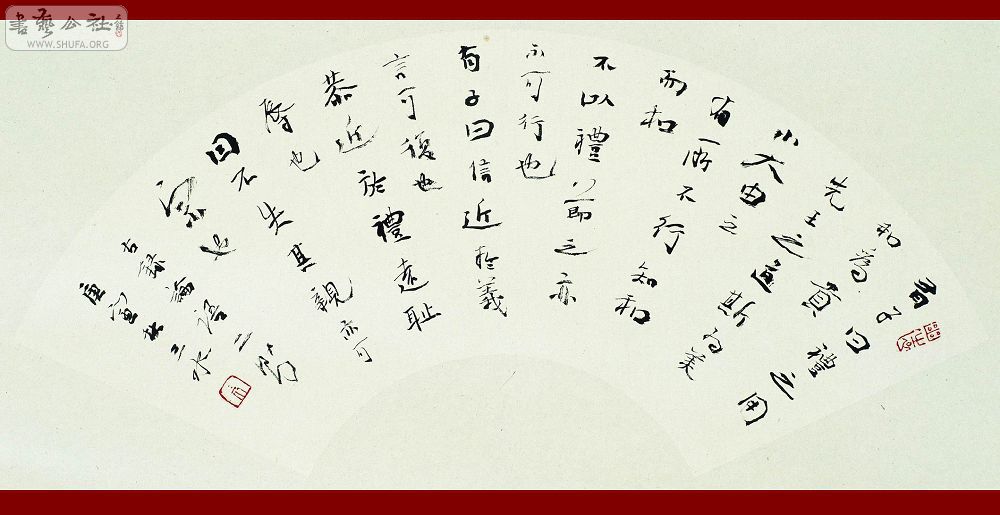 有子曰禮之用
和為貴
先王之道斯為美
小大由之
有所不行知和
而和
不以禮節之亦
不可行也
有子曰信近於義
言可復也
恭近於禮遠恥
辱也
因不失其親亦可
宗也
右錄論語二則
庚寅秋三水
書藝公社
WWW.SHUFA.ORG